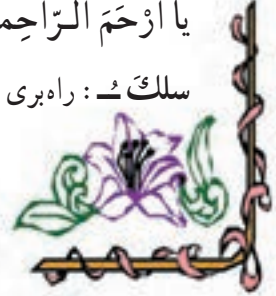 یا أَرْحَمَ الـرّاحِمـ
سلكَ ـُـ : راه‌بری